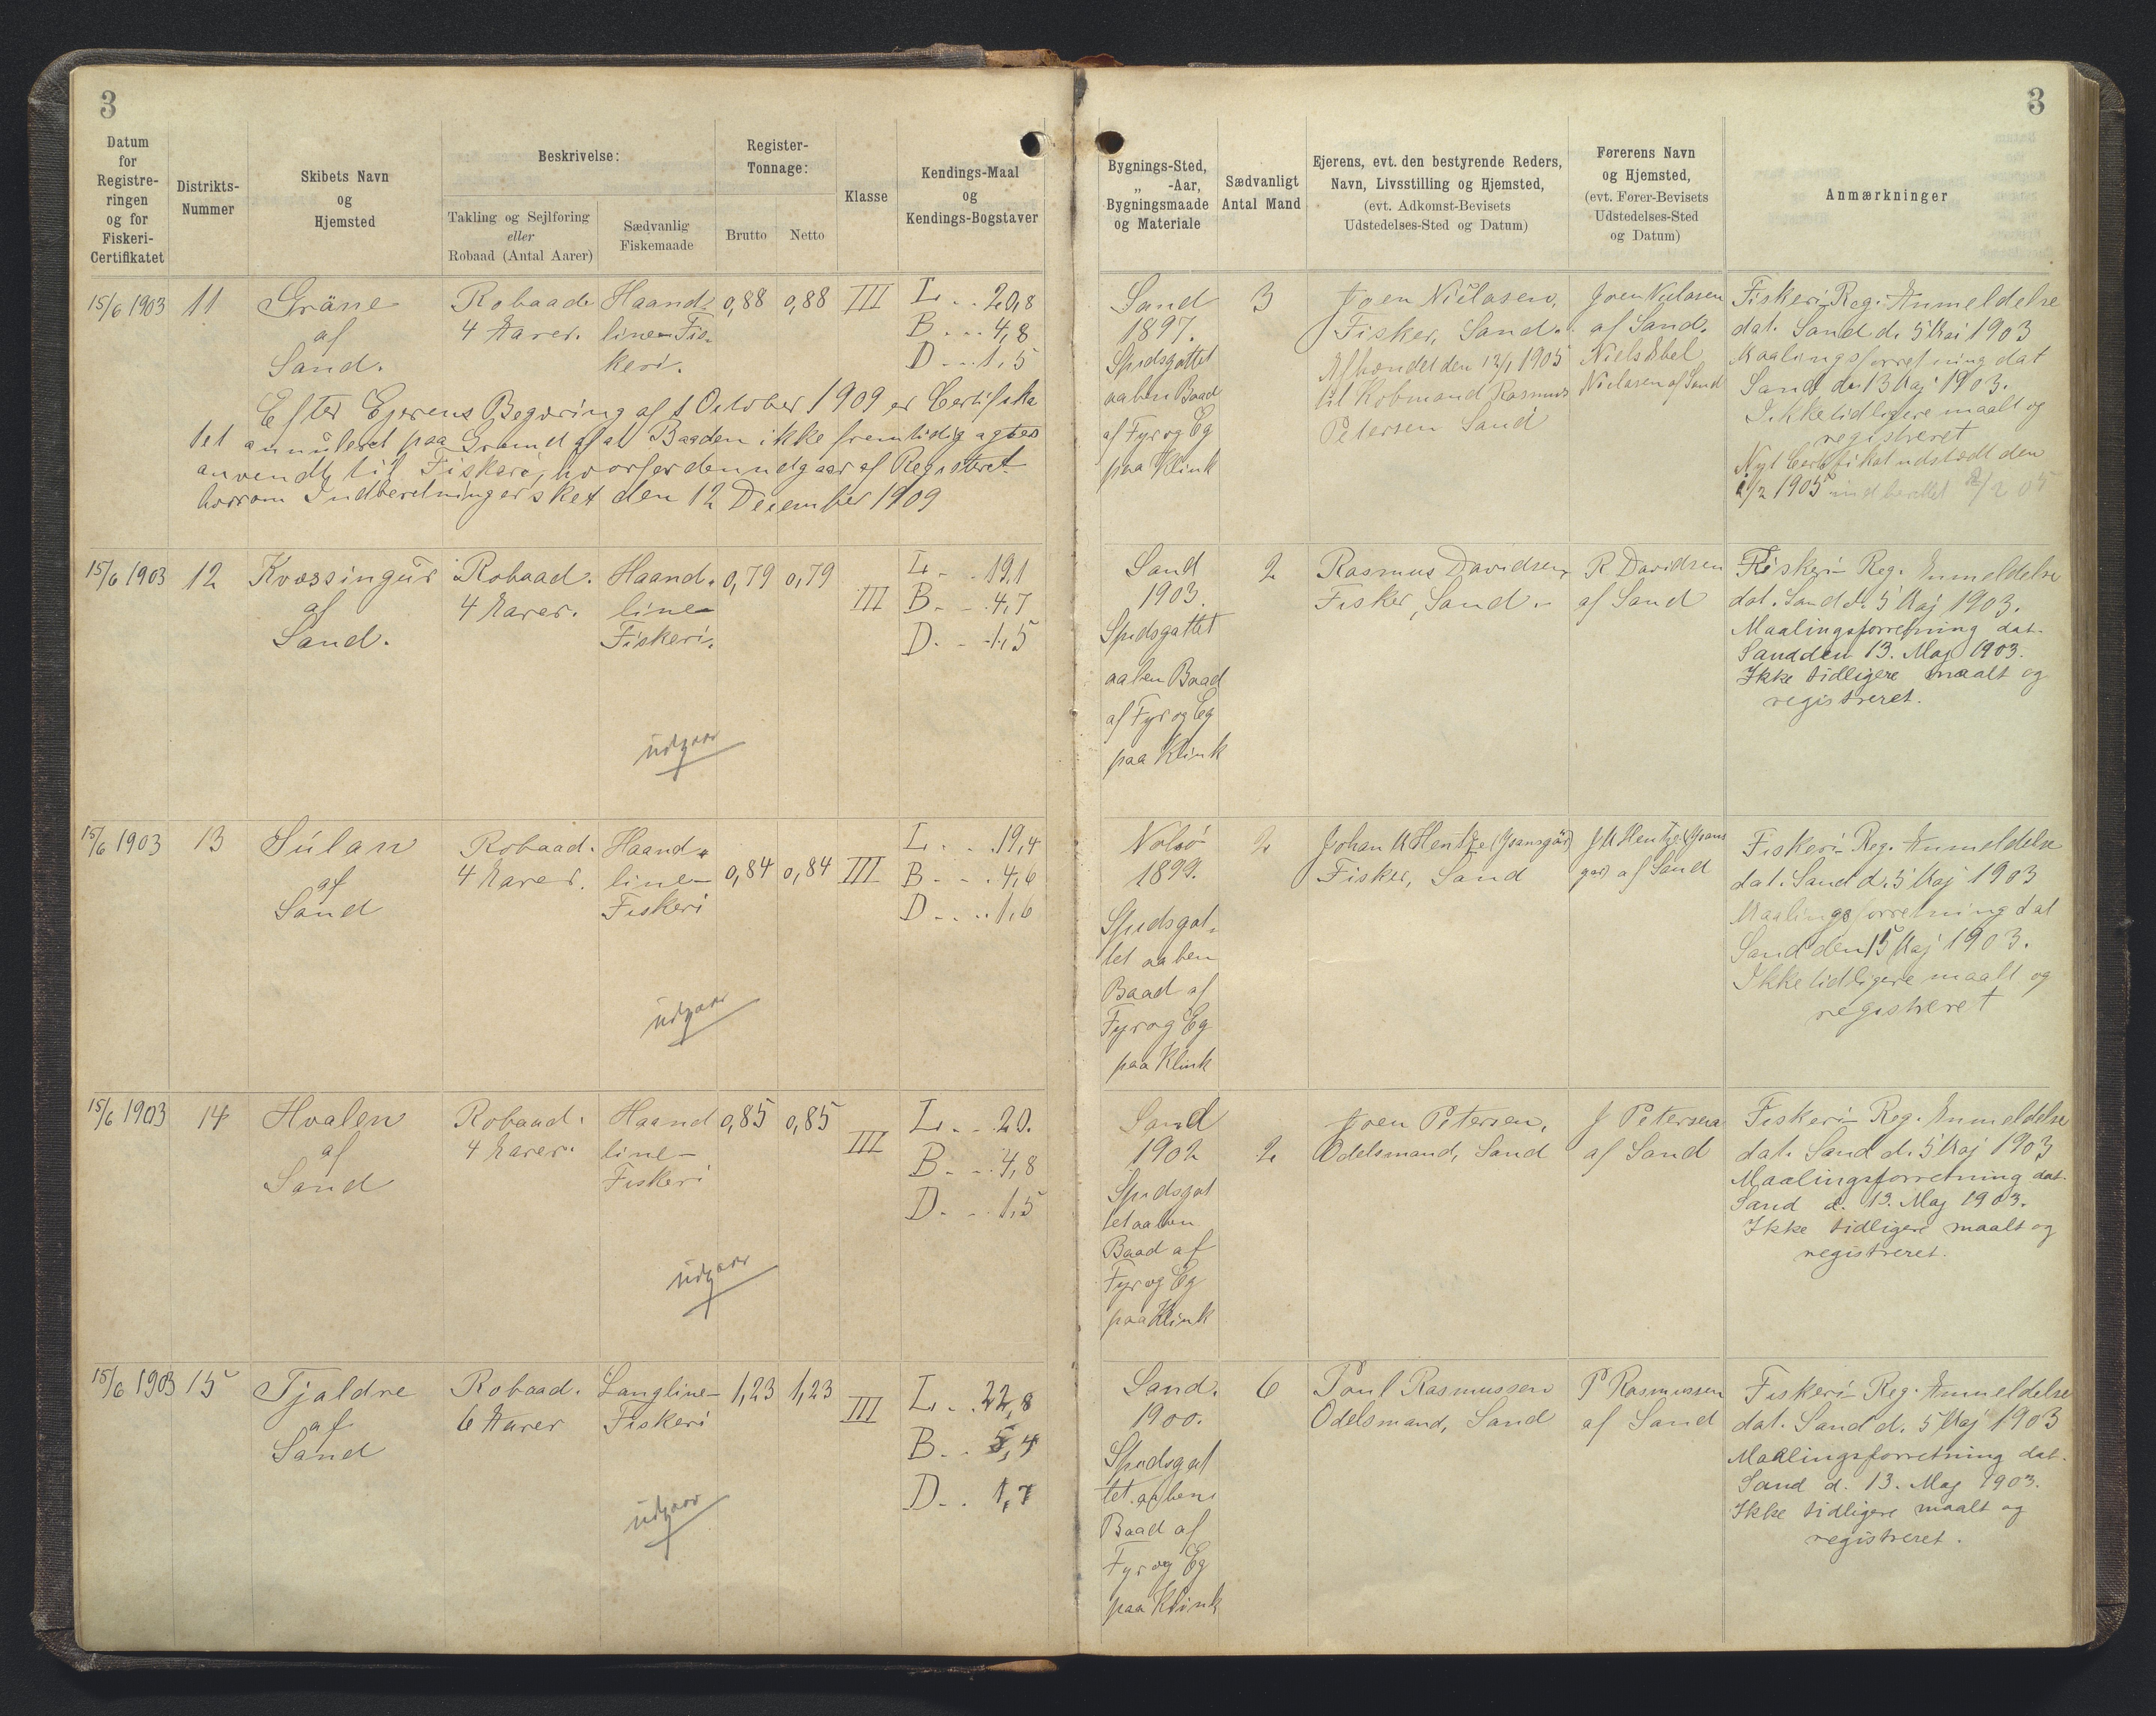 3
3
Datum
for
Registre-
ringen
og for
Fiskeri-
Certifikatet
Distrikts-
Nummer
Skibets Navn
og
Hjemsted
Beskrivelse:
Takling og Sejlføring
eller
Robaad (Antal Aarer)
Sædvanlig
Fiskemaade
Register-
Tonnage:
Brutto
Netto
Klasse
Kendings-Maal
og
Kendings-Bogstaver
Bygnings-Sted,
„ -Aar,
Bygningsmaade
og Materiale
Sædvanligt
Antal Mand
Ejerens, evt. den bestyrende Reders,
Navn, Livsstilling og Hjemsted,
(evt. Adkomst-Bevisets
Udstedelses-Sted og Datum)
Førerens Navn
og Hjemsted,
(evt. Fører-Bevisets
Udstedelses-Sted
og Datum)
Anmærkninger
15/6 1903
11
Gräne
af
Sand.
Robaad
4 Aarer.
Haand-
line Fis-
keri.
0,88
0,88
III
L. . . 20,8
B. . . 4,8
D. . . 1,5
Efter Ejerens Begæring af 1 October 1909 er Certifika
tet annuleret paa Grund af at Baaden ikke fremtidig agtes
anvendt til Fiskeri, hvorfor den udgaar af Registeret
hvorom Indberetning er sket den 12 December 1909
Sand
1897.
Spidsgattet
aaben Baad
af Fyr og Eg
paa Klink
3
Joen Nielasen,
Fisker, Sand.
Afhændet den 12/1 1905
til Købmand Rasmus
Petersen Sand
Joen Nielasen
af Sand.
Niels
Nielasen af Sand
Fiskeri-Reg. Anmeldelse
dat. Sand d. 5 Maj 1903
Maalingsforretning dat
Sand d. 13 Maj 1903.
Ikke tidligere maalt og
registreret
Nyt Certifikat udstædt den
/2 1905 indberettet /2 05
15/6 1903
12
Kvæssingur
af
Sand.
Robaad.
4 Aarer.
Haand-
line-
Fiskeri.
0,79
0,79
III
L. . . 19,1
B. . . 4,7
D. . . 1,5
udgaar
Sand
1903.
Spidsgattet
aaben Baad
af Fyr og Eg
paa Klink
2
Rasmus Davidsen,
Fisker, Sand.
R Davidsen
af Sand
Fiskeri-Reg. Anmeldelse
dat. Sand d. 5 Maj 1903.
Maalingsforretning dat.
Sand den 13. Maj 1903.
Ikke tidligere maalt og
registreret.
15/6 1903
13
Súlan
af
Sand
Robaad.
4 Aarer.
Haand-
line-
Fiskeri
0,84
0,84
III
L. . . 19,4
B. . . 4,6
D. . . 1,6
udgaar
Nolsö
1899.
Spidsgat-
tet aaben
Baad af
Fyr og Eg
paa Klink
2
Johan M Hentze
Fisker, Sand
J M Hentze
af Sand
Fiskeri-Reg. Anmeldelse
dat. Sand d. 5 Maj 1903
Maalingsforretning dat
Sand den Maj 1903.
Ikke tidligere maalt og
registreret
15/6 1903
14
Hvalen
af
Sand
Robaad.
4 Aarer.
Haand
line-
Fiskeri
0,85
0,85
III
L. . . 20.
B. . . 4,8
D. . . 1,5
udgaar
Sand
1902
Spidsgat
tet aaben
Baad af
Fyr og Eg
paa Klink
2
Joen Petersen,
Odelsmand, Sand
J Petersen
af Sand
Fiskeri-Reg. Anmeldelse
dat. Sand d. 5 Maj 1903
Maalingsforretning dat.
Sand d. 13. Maj 1903.
Ikke tidligere maalt og
registreret.
15/6 1903
15
Tjaldre
af
Sand
Robaad.
6 Aarer
Langline-
Fiskeri
1,23
1,23
III
L. . . 22,8
B. . . 5,4
D. . . 1,7
udgaar
Sand.
1900.
Spidsgat
tet aaben
Baad af
Fyr og Eg
paa Klink
6
Poul Rasmussen
Odelsmand, Sand
P Rasmussen
af Sand
Fiskeri-Reg. Anmeldelse
dat. Sand d. 5 Maj 1903
Maalingsforretning dat.
Sand d. 13. Maj 1903.
Ikke tidligere maalt og
registreret.